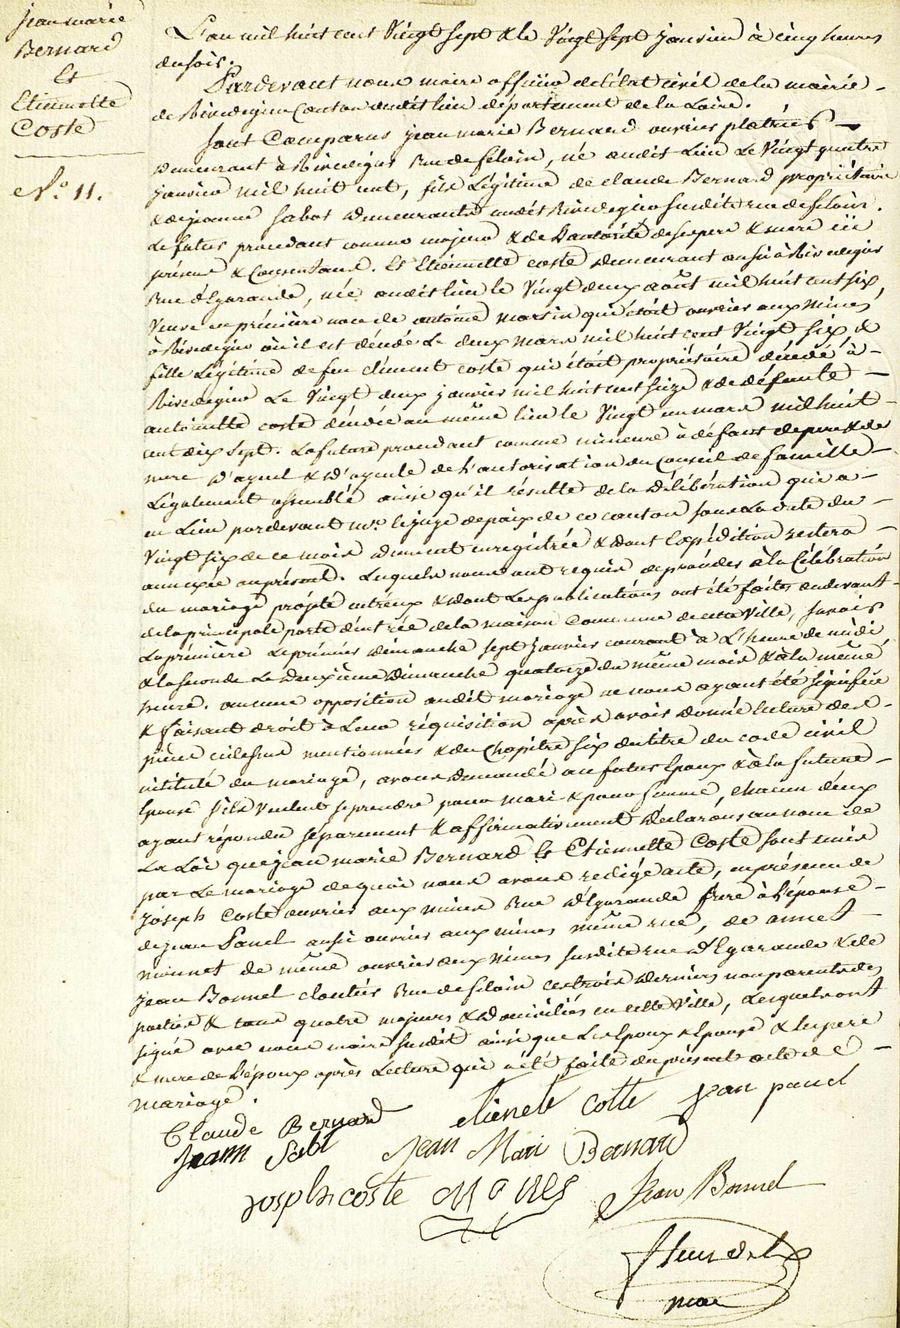 jean marie
Bernard
Et
Etiennette
Coste
N.o 11.
L'an mil huit cent vingt sept & le vingt sept janvier à cinq heures
du soir.
Pardevant nous maire officier de l'état civil de la mairie
de Rivedegier Canton dudit lieu département de la Loire.
Sont Comparus jean marie Bernard ouvrier platrier
demeurant à Rivedegier Rue de feloin, né audit Lieu Le Vingt quatre
janvier mil huit cent, fils Légitime de claude Bernard propriétaire
& de jeanne Sabot demeurants audit Rivedegier susdite rue de feloin.
Le futur procedant comme majeur & de L'autorité de ses pere & mere ici
présens & Consentans. Et Etiennette coste demeurant aussi à Rivedegier
Rue d'Egarande, née audit lieu le Vingt deux août mil huit cent six
Veuve en première noce de antoine marsin qui étoit ouvrier aux mines
à Rivedegier où il est décédé Le deux mars mil huit cent Vingt six, &
fille Légitime de feu clément coste qui étoit propriétaire décédé à
Rivedegier Le Vingt deux janvier mil huit cent seize & de défunte
antoinette coste décédée au même lieu le Vingt un mars mil huit
cent dix sept. La future procedant comme mineure à défaut de pere & de
mere d'ayeul & d'ayeule de l'autorisation du Conseil de famille
Légalement assemblé ainsi qu'il résulte de la délibération qui a
eu Lieu pardevant mr. le juge de paix de ce canton sous La date du
Vingt six de ce mois dument enregistrée & dont L'expédition restera
annexée au présent. Lesquels nous ont requis de procéder à la Célébration
du mariage projeté entr'eux & dont Les publications ont été faites au devant
de la principale porte d'entrée de la maison Commune de cette Ville, savoir
La première Le premier dimanche sept janvier courant à L'heure de midi
& la seconde Le deuxième Dimanche quatorze du même mois & à la même
heure. aucune opposition audit mariage ne nous ayant été signifiée
& faisant droit à Leur réquisition après avoir donné lecture des
pièces cidessus mentionnées & du Chapitre six du titre du code civil
intitulé du mariage, avons demandé au futur Epoux & à la future
Epouse s'ils veulent se prendre pour mari & pour femme, chacun d'eux
ayant répondu séparement & affirmativement déclarons au nom de
La Loi que jean marie Bernard & Etiennette Coste sont unis
par Le mariage de quoi nous avons redigé acte, en présence de
joseph Coste ouvrier aux mines Rue d'Egarande frere à L'épouse
de jean Panel aussi ouvrier aux mines même rue, de annet
monnet de même ouvrier aux mines susdite rue d'Egarande & de
jean Bonnel cloutier Rue de feloin ces trois derniers non parents des
parties & tous quatre majeurs & domiciliés en cette Ville, Lesquels ont
signé avec nous maire susdit ainsi que Les Epoux & Epouse & les pere
& mere de L'époux après Lecture qui a été faite du présent acte de
mariage.
Claude Bernard etienete cotte jean panel
jeann Sabt Jean Mari Bernard
Josphs coste Jean Bonnel